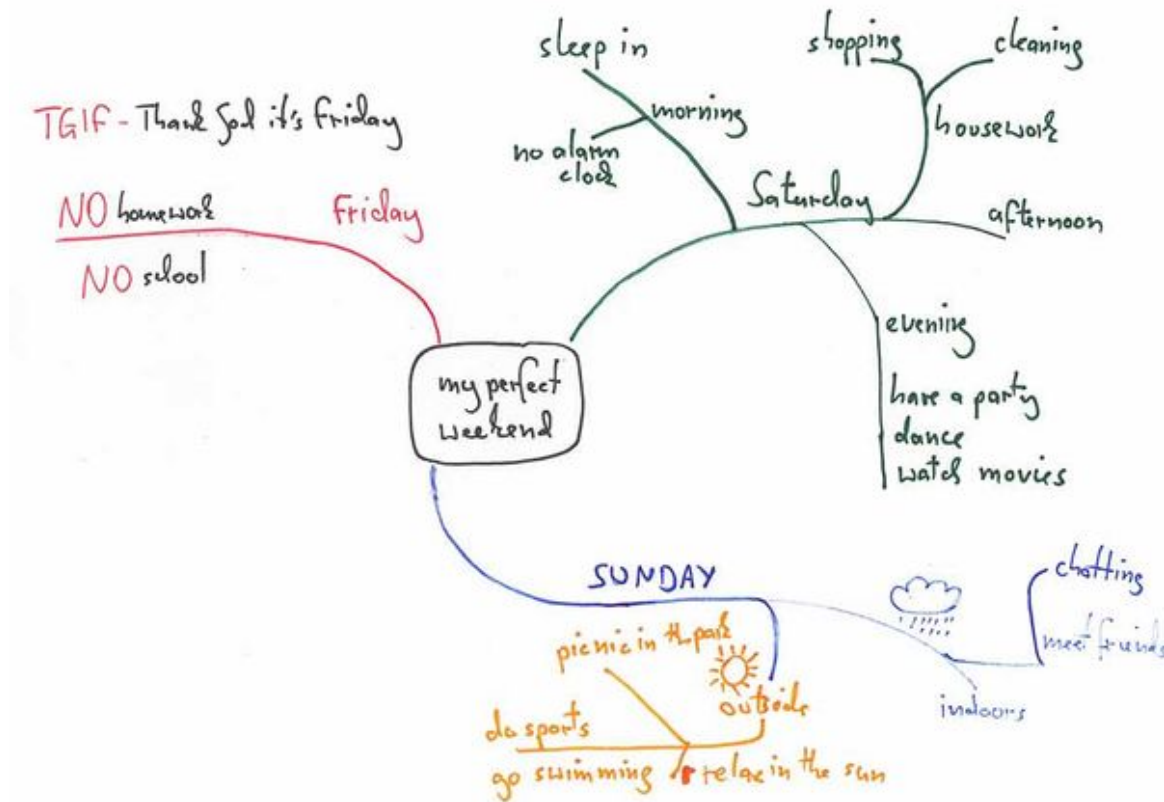 TGIF - Thank God it's Friday
NO homework
Friday
NO school
sleep in
morning
no alarm
clock
Saturday
shopping
cleaning
housework
afternoon
evening
have a party
dance
watch movies
my perfect
weekend
SUNDAY
picnic in the park
outside
do sports
go swimming
relax in the sun
chatting
meet friends
indoors